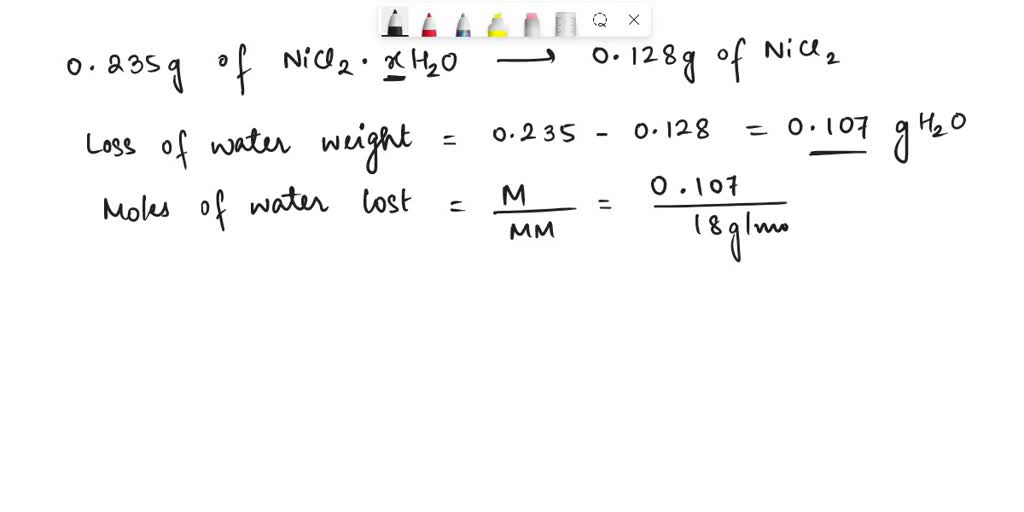 0.235g of NiCl2·xH2O → 0.128g of NiCl2
Loss of water weight = 0.235 - 0.128 = 0.107 g H2O
Moles of water lost = M/MM = 0.107/18g/mo